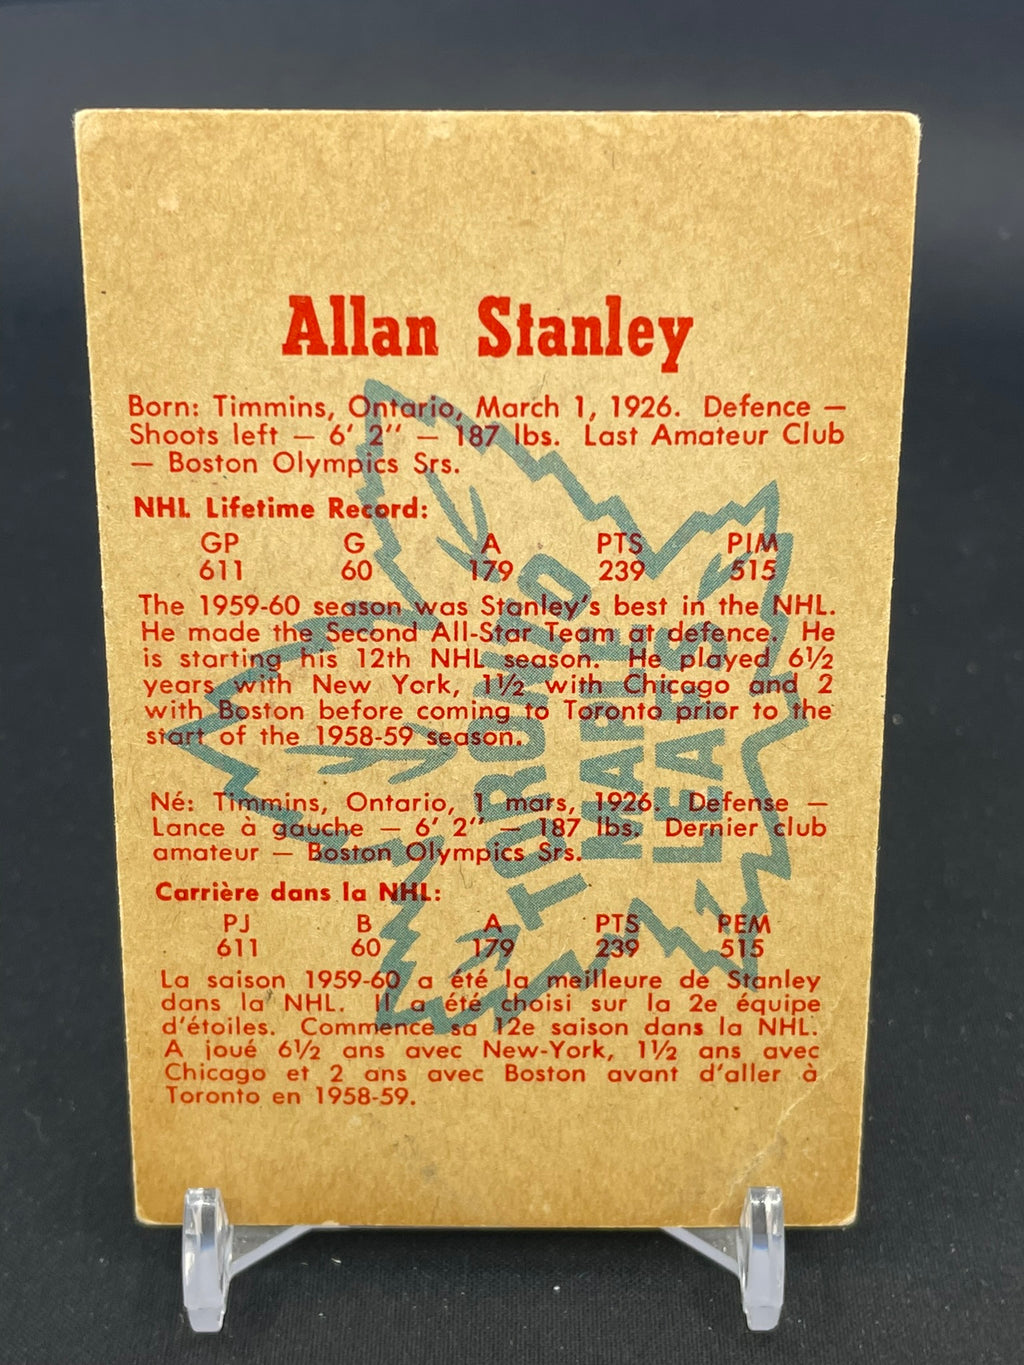 Allan Stanley
Born: Timmins, Ontario, March 1, 1926. Defence —
Shoots left — 6' 2" — 187 lbs. Last Amateur Club
— Boston Olympics Srs.
NHL Lifetime Record:
GP G A PTS PIM
611 60 179 239 515
The 1959-60 season was Stanley's best in the NHL.
He made the Second All-Star Team at defence. He
is starting his 12th NHL season. He played 6½
years with New York, 1½ with Chicago and 2
with Boston before coming to Toronto prior to the
start of the 1958-59 season.
Né: Timmins, Ontario, 1 mars, 1926. Defense —
Lance à gauche — 6' 2" — 187 lbs. Dernier club
amateur — Boston Olympics Srs.
Carrière dans la NHL:
PJ B A PTS PEM
611 60 179 239 515
La saison 1959-60 a été la meilleure de Stanley
dans la NHL. Il a été choisi sur la 2e équipe
d'étoiles. Commence sa 12e saison dans la NHL.
A joué 6½ ans avec New-York, 1½ ans avec
Chicago et 2 ans avec Boston avant d'aller à
Toronto en 1958-59.
TORONTO
MAPLE
LEAFS